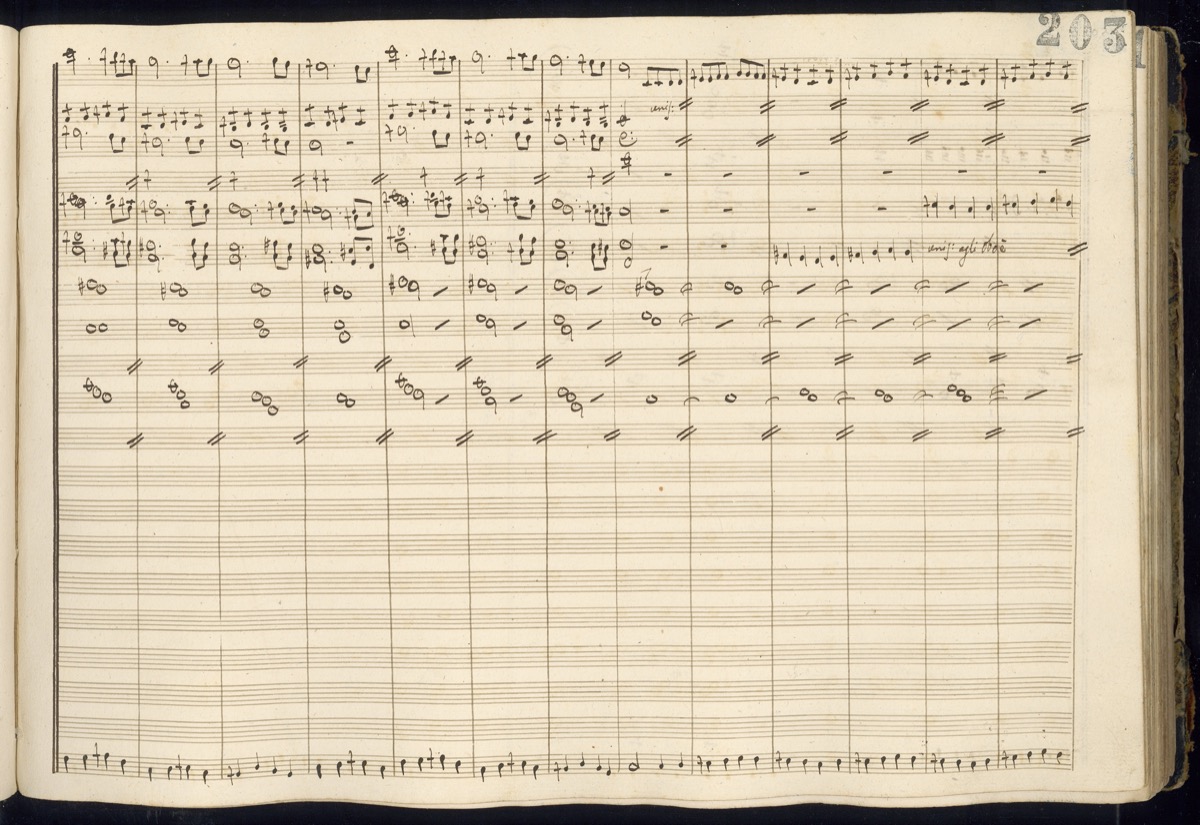 203
unis:
unis: agli Oboè